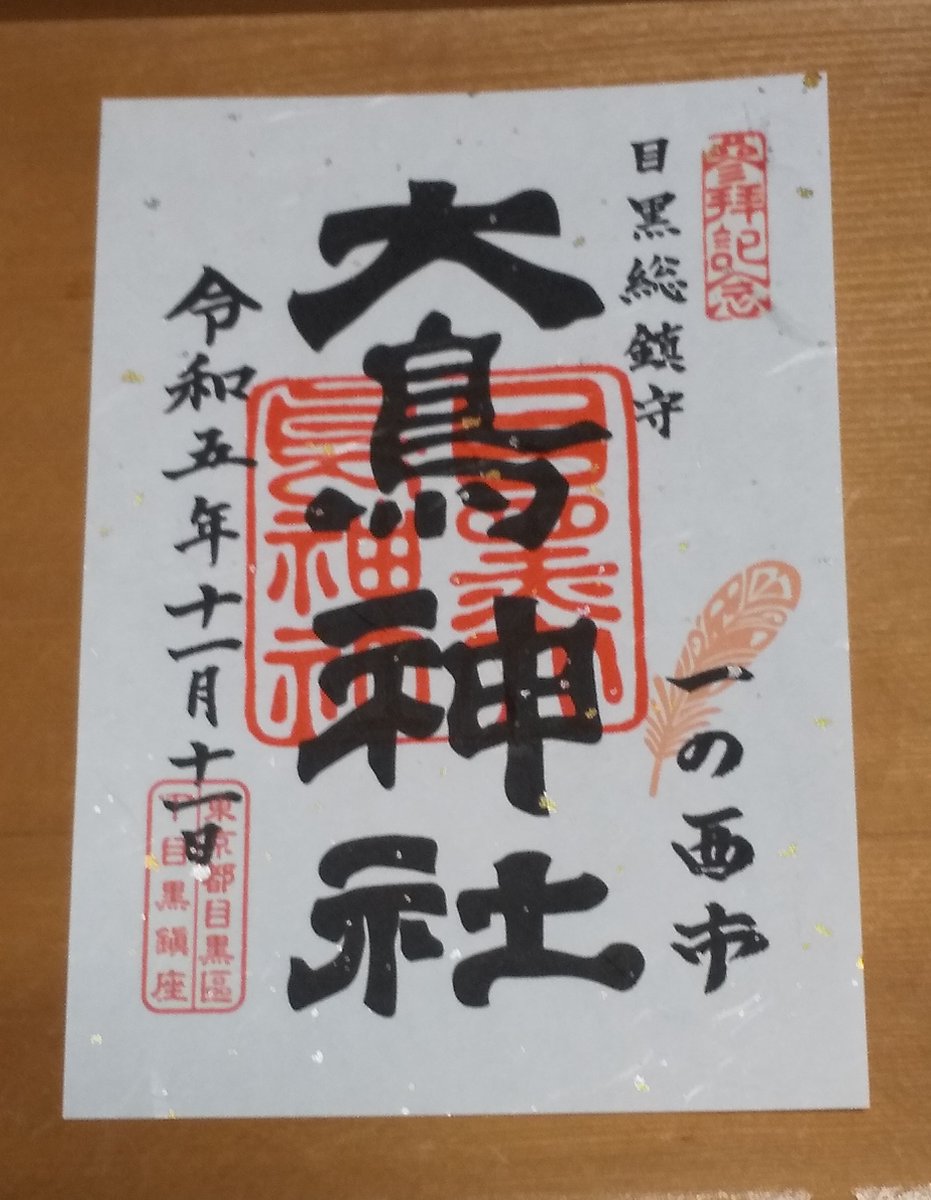 参拝記念
目黒総鎮守
一の酉市
大鳥神社
令和五年十一月十一日
東京都目黒區
下目黒鎭座